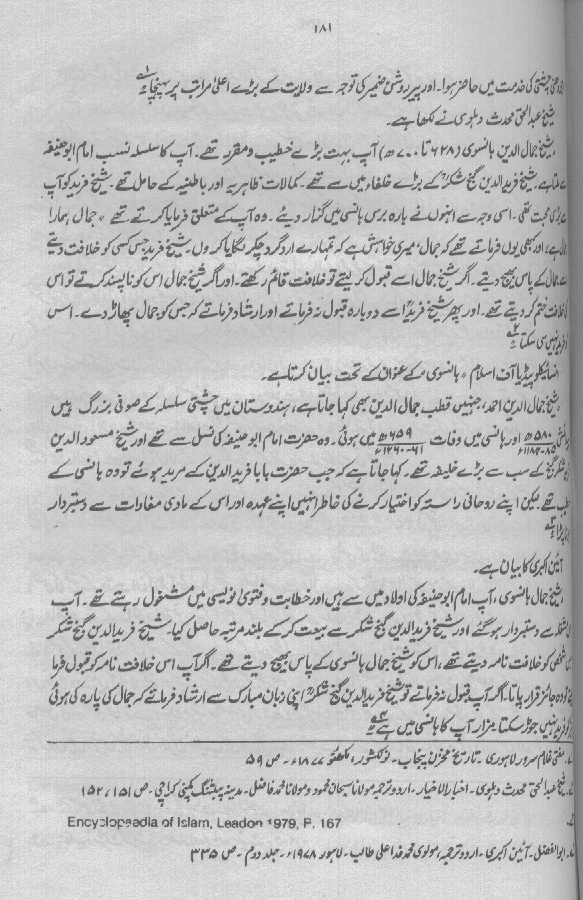 ۱۸۱
چشتی کی خدمت میں حاضر ہوا۔ اور پیر روشن ضمیر کی توجہ سے ولایت کے بڑے اعلیٰ مراتب پر پہنچا۔
شیخ عبدالحق محدث دہلوی نے لکھا ہے۔
شیخ جمال الدین ہانسوی (۶۲۸ تا ۷۰۰ھ) آپ بہت بڑے خطیب و مقرر تھے۔ آپ کا سلسلہ نسب امام ابو حنیفہ
ملتا ہے۔ شیخ فرید الدین گنج شکرؒ کے بڑے خلفاء میں سے تھے۔ کمالات ظاہریہ اور باطنیہ کے حامل تھے۔ شیخ فرید کو آپ
بڑی محبت تھی۔ اسی وجہ سے انہوں نے بارہ برس ہانسی میں گزار دیئے۔ وہ آپ کے متعلق فرمایا کرتے تھے "جمال ہمارا
ہے، اور کبھی یوں فرماتے تھے کہ جمال، میری خواہش ہے کہ تمہارے ارد گرد چکر لگایا کروں۔ شیخ فرید جس کسی کو خلافت دیتے
جمال کے پاس بھیج دیتے۔ اگر شیخ جمال اسے قبول کر لیتے تو خلافت قائم رکھتے۔ اور اگر شیخ جمال اس کو ناپسند کرتے تو اس
خلافت ختم کر دیتے تھے۔ اور پھر شیخ فریدؒ اسے دوبارہ قبول نہ فرماتے اور ارشاد فرماتے کہ جس کو جمال پھاڑ دے۔ اس
فرید نہیں سی سکتا۔۲
انسائیکلوپیڈیا آف اسلام "ہانسوی" کے عنوان کے تحت بیان کرتا ہے۔
شیخ جمال الدین احمد، جنہیں قطب جمال الدین بھی کہا جاتا ہے، ہندوستان میں چشتی سلسلہ کے صوفی بزرگ ہیں
۵۸۰ھ / ۸۵-۱۱۸۴ء اور ہانسی میں وفات ۶۵۹ھ / ۶۱-۱۲۶۰ء میں ہوئی۔ وہ حضرت امام ابو حنیفہ کی نسل سے تھے اور شیخ مسعود الدین
شکر گنج کے سب سے بڑے خلیفہ تھے۔ کہا جاتا ہے کہ جب حضرت بابا فرید الدین کے مرید ہوئے تو وہ ہانسی کے
خطیب تھے لیکن اپنے روحانی راستہ کو اختیار کرنے کی خاطر انہیں اپنے عہدہ اور اس کے مادی مفادات سے دستبردار
ہونا پڑا۔۳
آئین اکبری کا بیان ہے۔
شیخ جمال ہانسوی، آپ امام ابو حنیفہ کی اولاد میں سے ہیں اور خطابت و فتویٰ نویسی میں مشغول رہتے تھے۔ آپ
سے دستبردار ہو گئے اور شیخ فرید الدین گنج شکر سے بیعت کر کے بلند مرتبہ حاصل کیا، شیخ فرید الدین گنج شکر
شخص کو خلافت نامہ دیتے تھے، اس کو شیخ جمال ہانسوی کے پاس بھیج دیتے تھے۔ اگر آپ اس خلافت نامہ کو قبول فرما
تو وہ جائز قرار پاتا، اگر آپ قبول نہ فرماتے تو شیخ فرید الدین گنج شکرؒ اپنی زبان مبارک سے ارشاد فرماتے کہ جمال کی پارہ کی ہوئی
کو فرید نہیں جوڑ سکتا۔ مزار آپ کا ہانسی میں ہے۔۴
مفتی غلام سرور لاہوری۔ تاریخ مخزن پنجاب۔ نولکشور، لکھنؤ ۱۸۷۷ء۔ ص ۵۹
شیخ عبدالحق محدث دہلوی۔ اخبار الاخیار۔ اردو ترجمہ مولانا سبحان محمود و مولانا محمد فاضل۔ مدینہ پبلشنگ کمپنی کراچی۔ ص ۱۵۱، ۱۵۲
Encyclopaedia of Islam, Leadon 1979, P. 167
ابوالفضل۔ آئین اکبری۔ اردو ترجمہ، مولوی محمد فدا علی طالب۔ لاہور ۱۹۷۸ء۔ جلد دوم۔ ص ۳۳۵